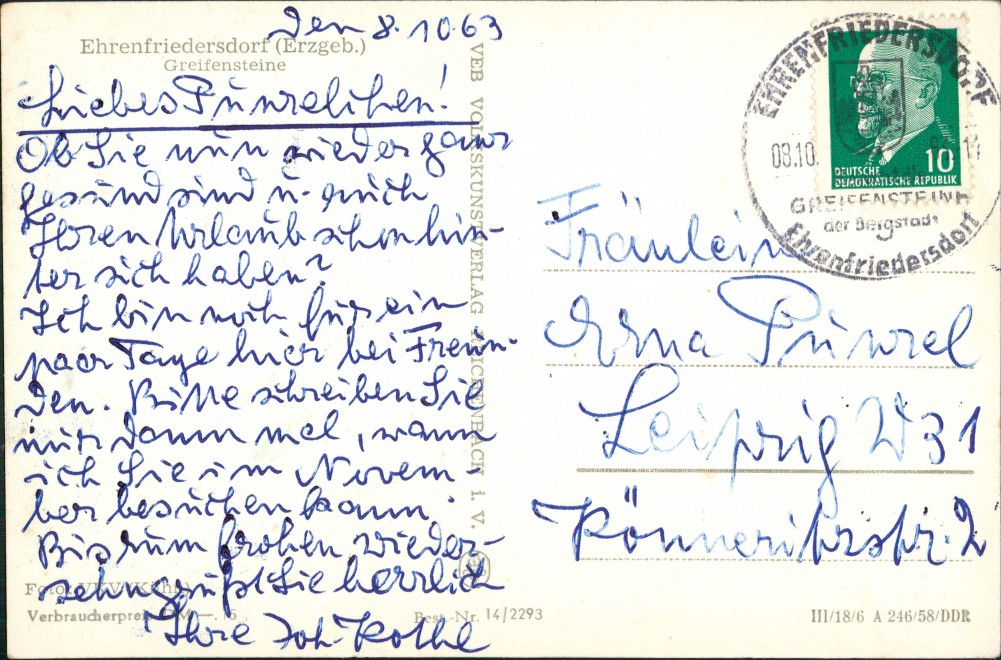 den 8.10.63
Ehrenfriedersdorf (Erzgeb.)
Greifensteine
Liebes Punzelchen!
Ob Sie nun wieder ganz
gesund sind u. auch
Ihren Urlaub schon hin-
ter sich haben?
Ich bin noch für ein
paar Tage hier bei Freun-
den. Bitte schreiben Sie
mir dann mal, wann
ich Sie im Novem-
ber besuchen kann.
Bis zum frohen Wieder-
sehn grüßt Sie herzlich
Ihre Joh. Kothe
VEB VOLKSKUNSTVERLAG REICHENBACH I. V.
Foto: VKV
Verbraucherpreis
Best.-Nr. 14/2293
III/18/6 A 246/58/DDR
EHRENFRIEDERSDORF
08.10.
GREIFENSTEINE
der Bergstadt
Ehrenfriedersdorf
10
DEUTSCHE
DEMOKRATISCHE REPUBLIK
Fräulein
Erna Punzel
Leipzig W31
Könneritzstr. 2